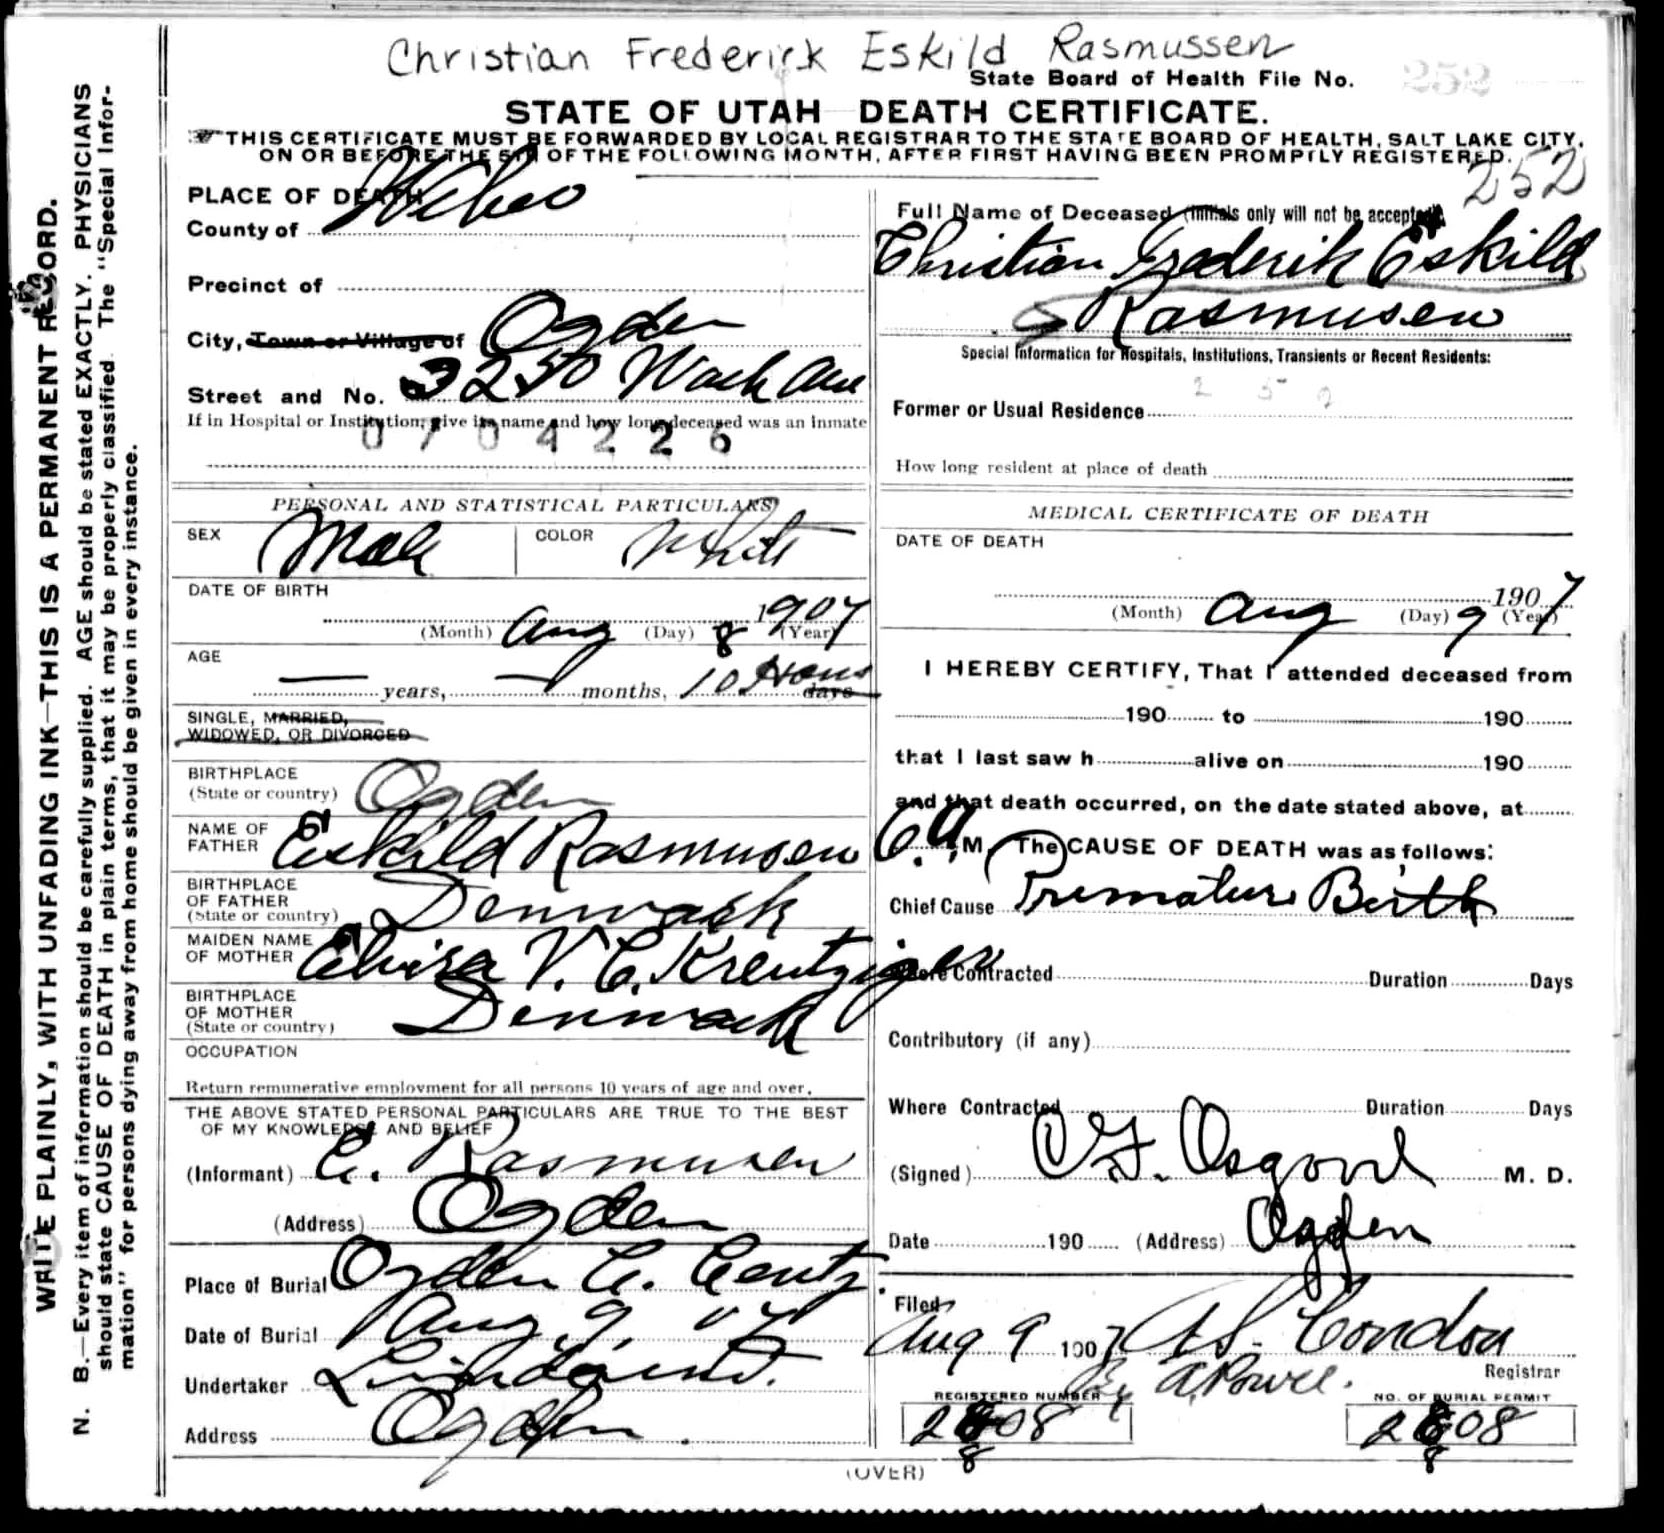 Christian Frederick Eskild Rasmussen
State Board of Health File No. 252
STATE OF UTAH DEATH CERTIFICATE.
THIS CERTIFICATE MUST BE FORWARDED BY LOCAL REGISTRAR TO THE STATE BOARD OF HEALTH, SALT LAKE CITY,
ON OR BEFORE THE 5TH OF THE FOLLOWING MONTH, AFTER FIRST HAVING BEEN PROMPTLY REGISTERED.
252
WRITE PLAINLY, WITH UNFADING INK—THIS IS A PERMANENT RECORD.
N. B.—Every item of information should be carefully supplied. AGE should be stated EXACTLY. PHYSICIANS
should state CAUSE OF DEATH in plain terms, that it may be properly classified. The "Special Infor-
mation" for persons dying away from home should be given in every instance.
PLACE OF DEATH
County of Weber
Precinct of
City, Town or Village of Ogden
Street and No. 3250 Wash Ave
If in Hospital or Institution, give its name and how long deceased was an Inmate
0704226
PERSONAL AND STATISTICAL PARTICULARS
SEX Male COLOR White
DATE OF BIRTH
(Month) Aug (Day) 8 1907 (Year)
AGE
— years, — months, 10 Hours days
SINGLE, MARRIED,
WIDOWED, OR DIVORCED
BIRTHPLACE
(State or country) Ogden
NAME OF
FATHER Eskild Rasmusen
BIRTHPLACE
OF FATHER
(State or country) Denmark
MAIDEN NAME
OF MOTHER Elvira V. C. Kreutziger
BIRTHPLACE
OF MOTHER
(State or country) Denmark
OCCUPATION
Return remunerative employment for all persons 10 years of age and over.
THE ABOVE STATED PERSONAL PARTICULARS ARE TRUE TO THE BEST
OF MY KNOWLEDGE AND BELIEF
(Informant) E. Rasmusen
(Address) Ogden
Place of Burial Ogden C.
Date of Burial Aug. 9, 07
Undertaker
Address Ogden
Full Name of Deceased (Initials only will not be accepted)
Christian Frederik Eskild
Rasmusen
Special Information for Hospitals, Institutions, Transients or Recent Residents:
Former or Usual Residence
How long resident at place of death
MEDICAL CERTIFICATE OF DEATH
DATE OF DEATH
(Month) Aug (Day) 9 1907 (Year)
I HEREBY CERTIFY, That I attended deceased from
190 to 190
that I last saw h alive on 190
and that death occurred, on the date stated above, at
6 a. M. The CAUSE OF DEATH was as follows:
Chief Cause Premature Birth
Where Contracted Duration Days
Contributory (if any)
Where Contracted Duration Days
(Signed) O. F. Osgood M. D.
Date 190 (Address) Ogden
Filed
Aug 9 1907 A S. Condon
Registrar
By A. Powell.
REGISTERED NUMBER NO. OF BURIAL PERMIT
2808 2808
8 8
(OVER)